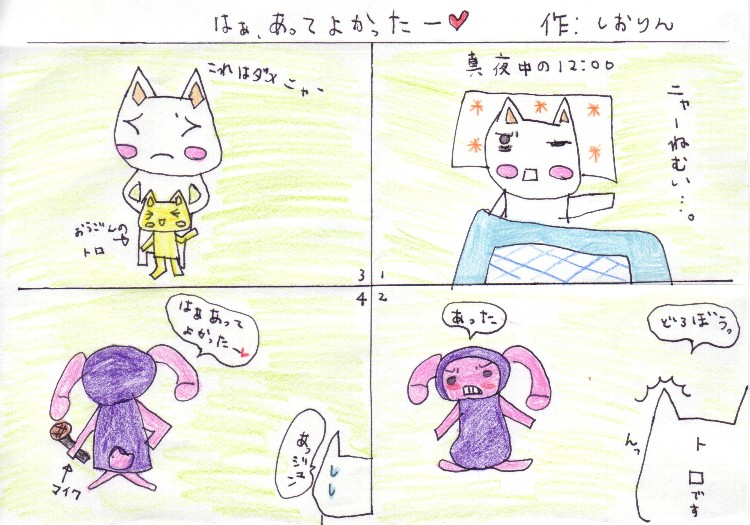 はぁ、あってよかったー♥ 作：しおりん
真夜中の12:00
ニャーねむい…。
1
2
どろぼうっ
あった
んっ
トロです
3
これはダメニャー
おうごんの
トロ
4
はぁあって
よかったー♥
マイク
あっジュン